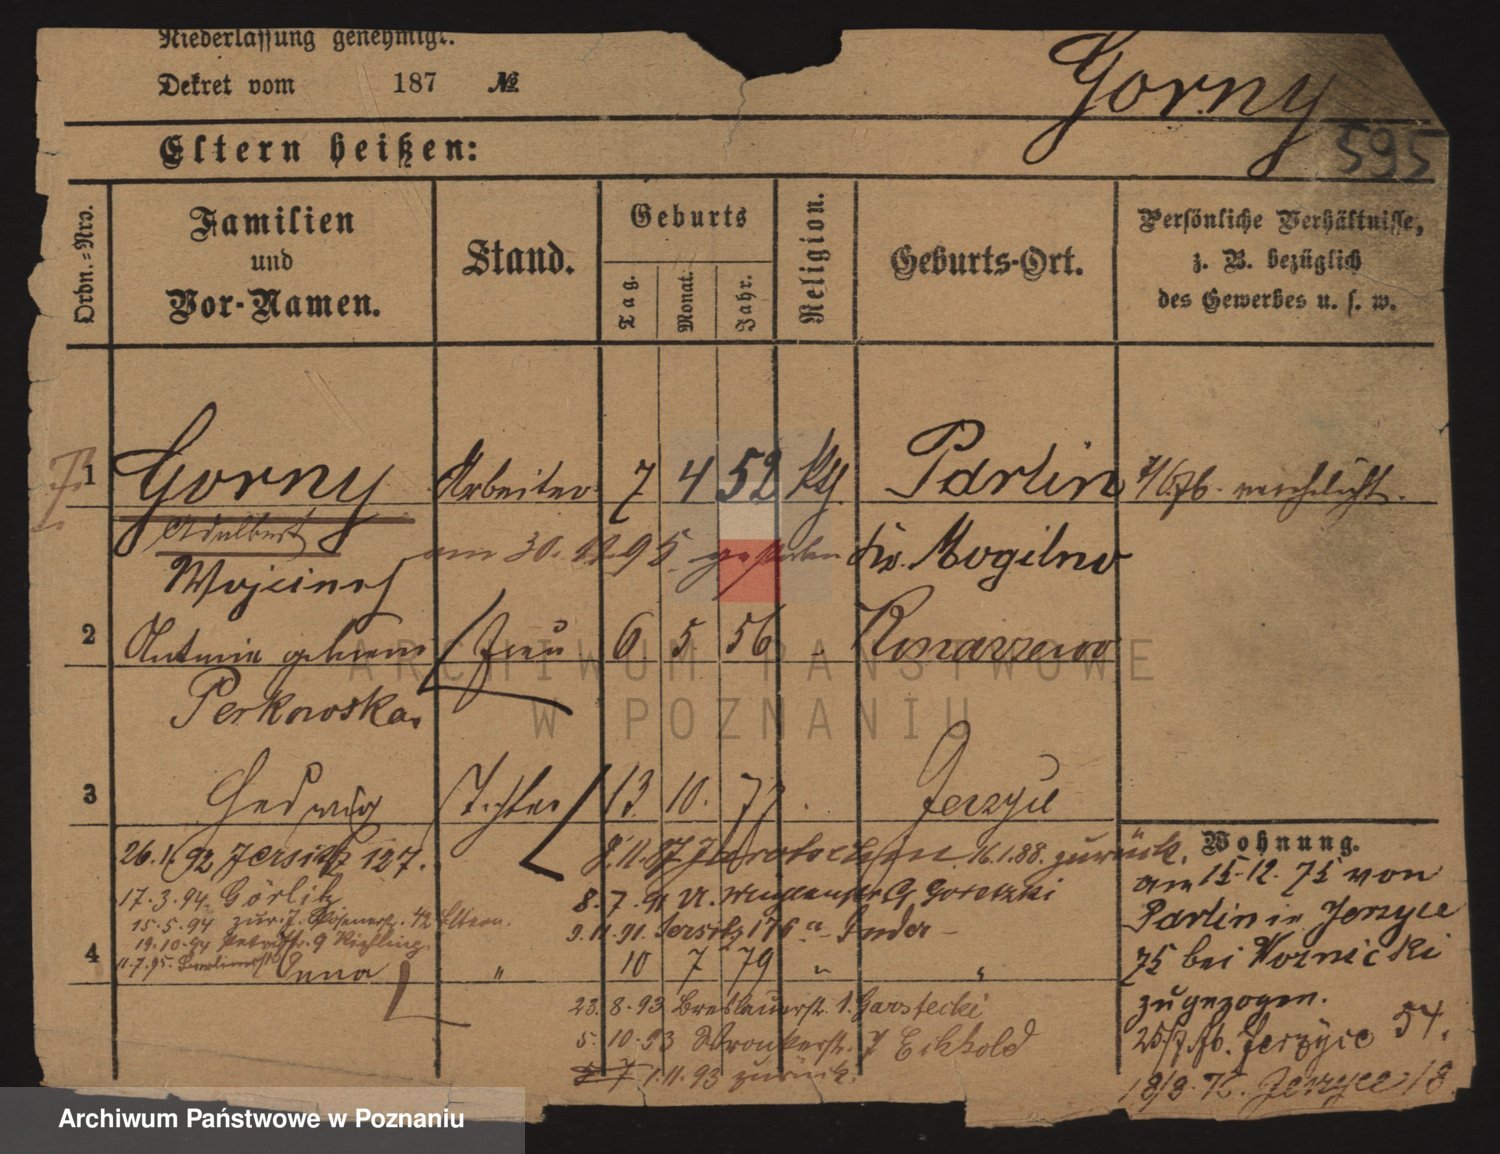 Niederlassung genehmigt.
Dekret vom 187 №
Gorny
595
Eltern heißen:
Ordn.-Nro.
Familien
und
Vor-Namen.
Stand.
Geburts
Tag.
Monat.
Jahr.
Religion.
Geburts-Ort.
Persönliche Verhältnisse,
z. B. bezüglich
des Gewerbes u. s. w.
1 Gorny Arbeiter 7 4 52 kth. Parlin
Adalbert
am 30. 12 95 gestorben Kr. Mogilno
Wojciech
2 Antonie geborene Frau 6 5 56 Konarzewo
Perkowska
3 Hedwig Tochter 13 10. 77 Jerzyce
26.1.92 Jersitz 127.
8.11.87 16.1.88. zurück.
17.3.94 Görlitz
8.7.91 Goretzki
15.5.94 zur. 42 Eltern.
9.11.91. Jersitz 176a
19.10.94 9 Kiehling.
11.7.95. Berlinerstr.
4 Anna " 10 7 79 " "
23.8.93 Breslauerstr. 1. Garstecki
5.10.93 Wronkerstr. 7 Eckhold
1.11.93 zurück.
Wohnung.
am 15-12. 75 von
Parlin in Jerzyce
75 bei Woznicki
zugezogen.
Jerzyce 54.
Jerzyce 18
ARCHIWUM PAŃSTWOWE
W POZNANIU
Archiwum Państwowe w Poznaniu